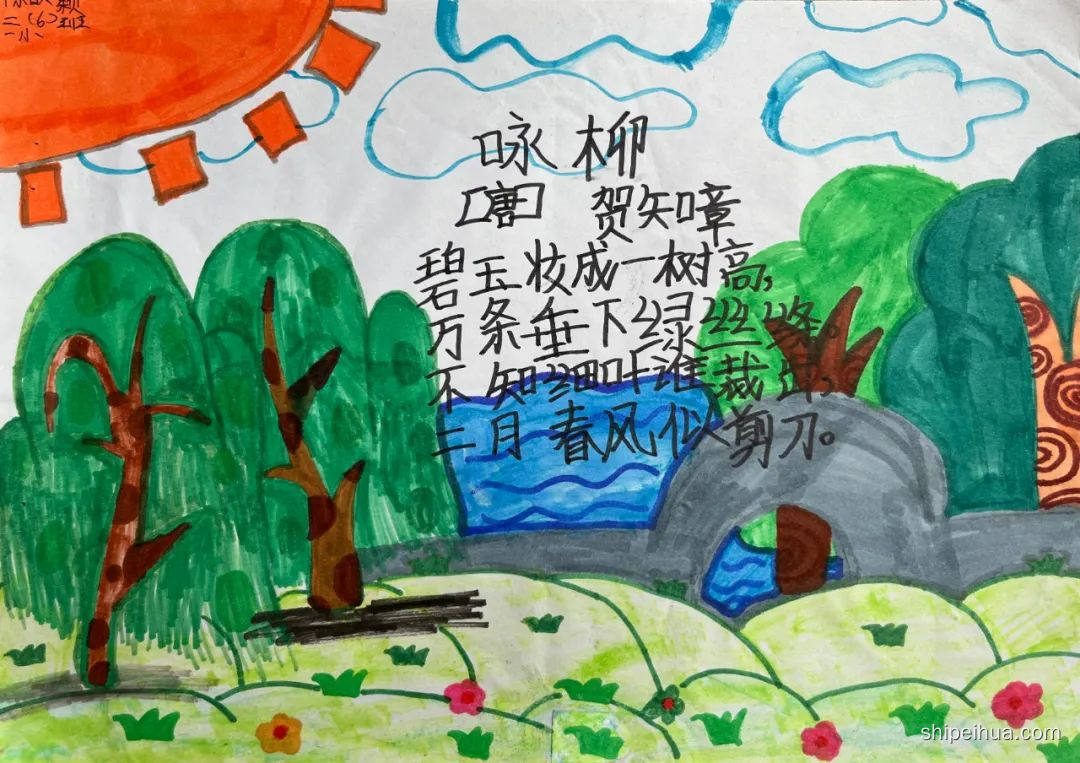 二(6)班
二小
咏柳
[唐] 贺知章
碧玉妆成一树高，
万条垂下绿丝绦。
不知细叶谁裁出，
二月春风似剪刀。
shipeihua.com